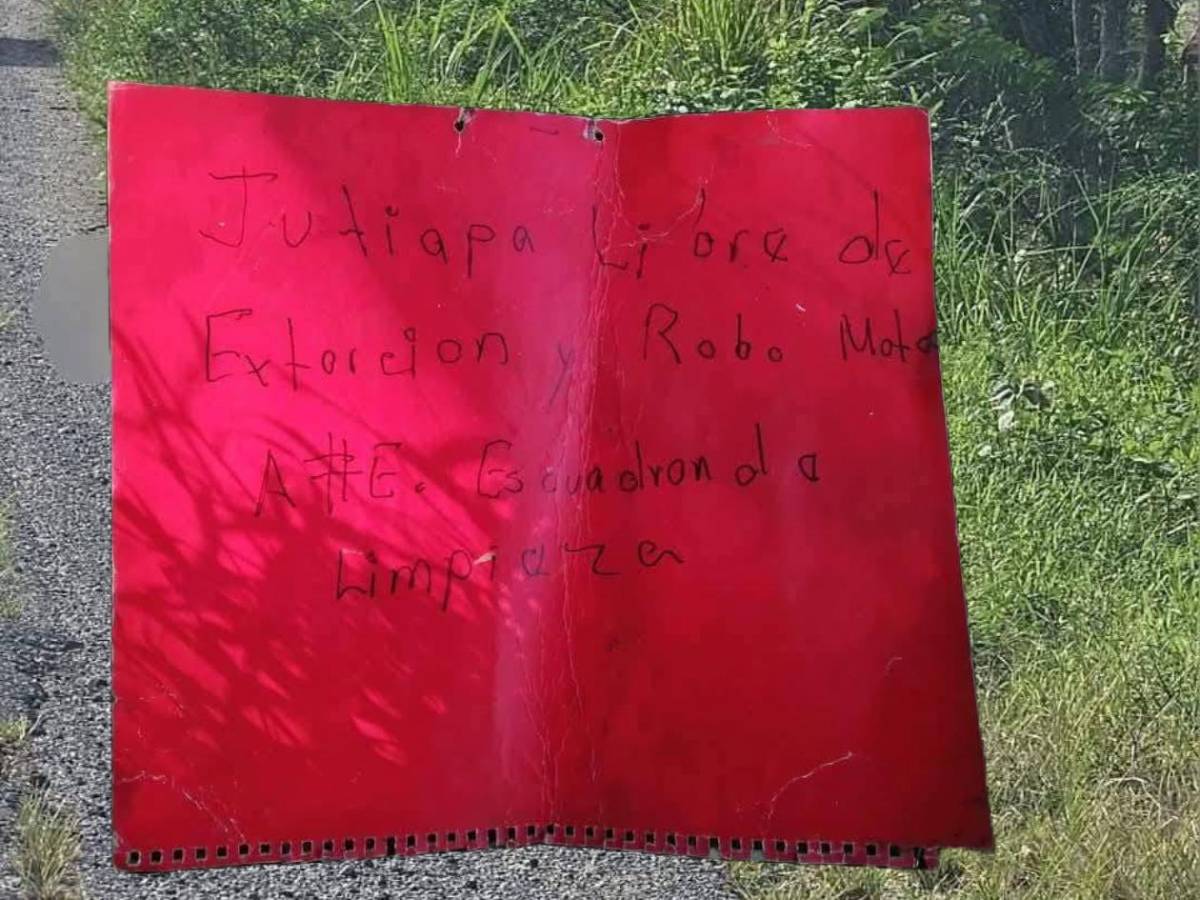 Jutiapa Libre de
Extorcion y Robo Moto
A#E. Escuadron de
Limpieza